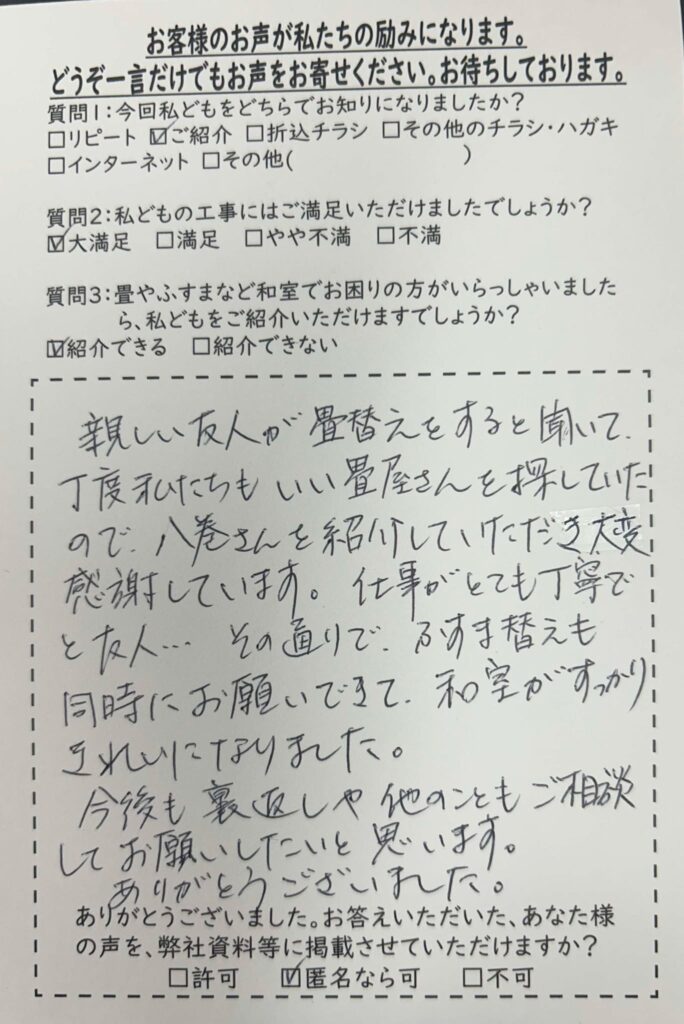 お客様のお声が私たちの励みになります。
どうぞ一言だけでもお声をお寄せください。お待ちしております。
質問1:今回私どもをどちらでお知りになりましたか?
□リピート ☑ご紹介 □折込チラシ □その他のチラシ・ハガキ
□インターネット □その他( )
質問2:私どもの工事にはご満足いただけましたでしょうか?
☑大満足 □満足 □やや不満 □不満
質問3:畳やふすまなど和室でお困りの方がいらっしゃいました
ら、私どもをご紹介いただけますでしょうか?
☑紹介できる □紹介できない
親しい友人が畳替えをすると聞いて、
丁度私たちもいい畳屋さんを探していた
ので、八巻さんを紹介していただき大変
感謝しています。仕事がとても丁寧で
と友人… その通りで、ふすま替えも
同時にお願いできて、和室がすっかり
きれいになりました。
今後も裏返しや他のこともご相談
してお願いしたいと思います。
ありがとうございました。
ありがとうございました。お答えいただいた、あなた様
の声を、弊社資料等に掲載させていただけますか?
□許可 ☑匿名なら可 □不可